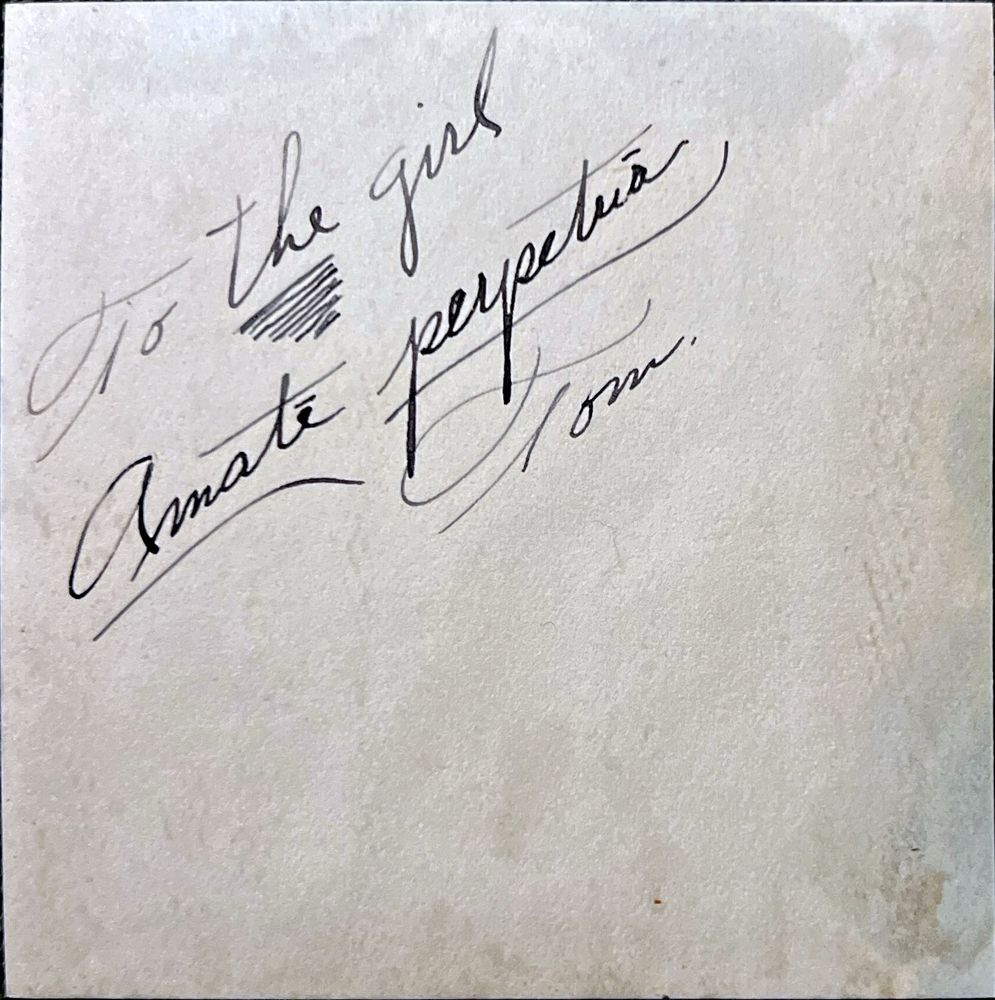 To the girl
Amatē perpetuā
Tom.